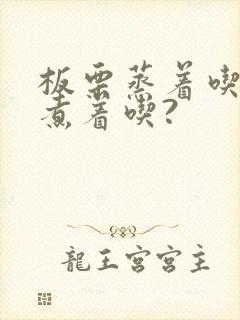 板栗蒸着喫
煮着喫?
龍王宮宮主